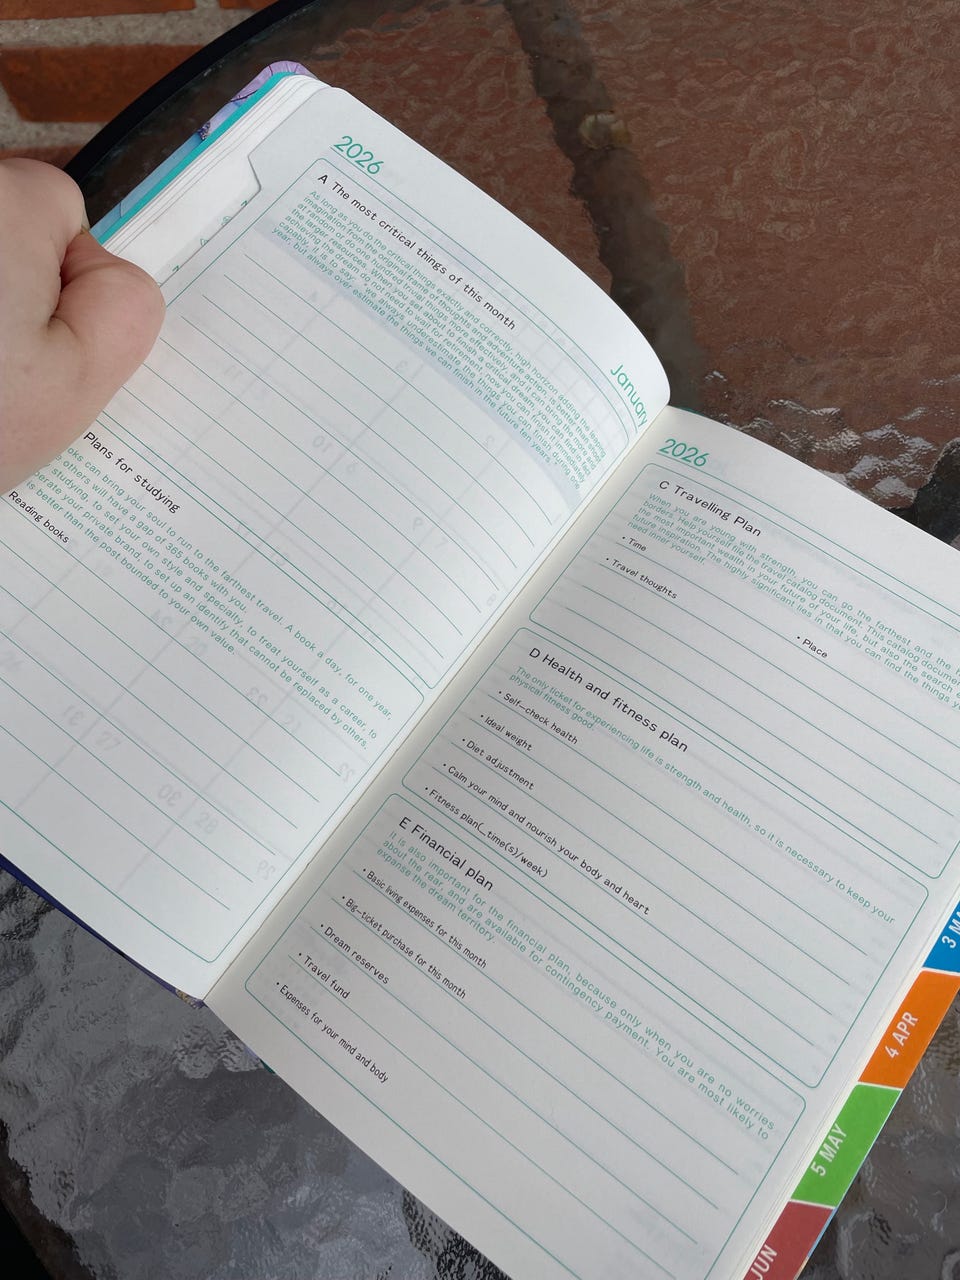 2026
January
A The most critical things of this month
As long as you do the critical things exactly and correctly, high horizon adding the leaping
imagination from the original frame of thoughts and adventure action, is better than shoot
at random or do one hundred trivial things more effectively, and it can bring the more and
the larger resources. When you set about to finish a critical dream, you can find in fact
achieving the dream do not need to wait for retirement, now you can finish it immediately
capably, it is to say, "we always underestimate the things you can finish during one
year, but always over estimate the things we can finish in the future ten years."
Plans for studying
oks can bring your soul to run to the farthest travel. A book a day, for one year,
e others will have a gap of 365 books with you.
studying, to set your own style and specialty, to treat yourself as a career, to
erate your private brand, to set up an identify that cannot be replaced by others.
is better than the post bounded to your own value.
Reading books
2026
C Travelling Plan
When you are young with strength, you can go the farthest and the
borders. Help yourself file the travel catalog document. This catalog docume
the most important wealth in your future of your life, but also the search
future inspiration. The highly significant lies in that you can find the things
need inner yourself.
• Time
• Place
• Travel thoughts
D Health and fitness plan
The only ticket for experiencing life is strength and health, so it is necessary to keep your
physical fitness good.
• Self-check health
• Ideal weight
• Diet adjustment
• Calm your mind and nourish your body and heart
• Fitness plan(_time(s)/week)
E Financial plan
It is also important for the financial plan, because only when you are no worries
about the rear, and are available for contingency payment. You are most likely to
expanse the dream territory.
• Basic living expenses for this month
• Big-ticket purchase for this month
• Dream reserves
• Travel fund
• Expenses for your mind and body
3 MA
4 APR
5 MAY
JUN